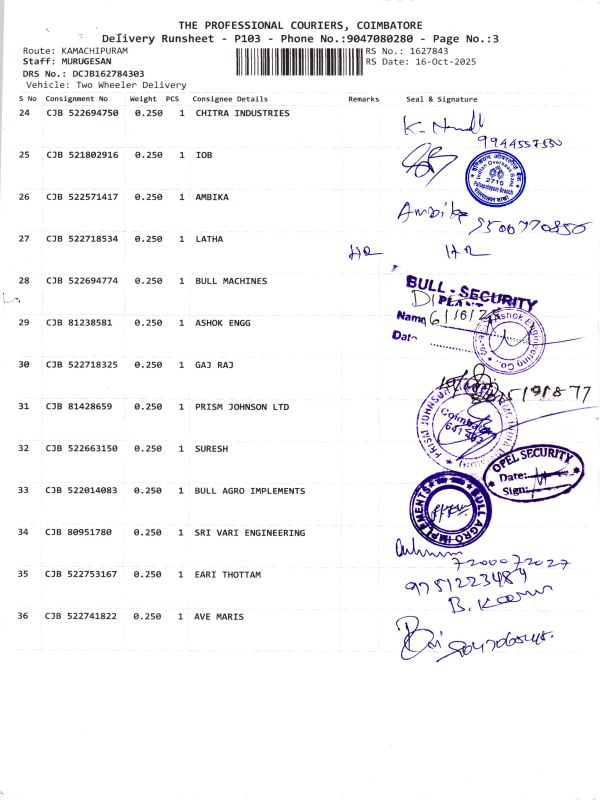 THE PROFESSIONAL COURIERS, COIMBATORE
Delivery Runsheet - P103 - Phone No.:9047080280 - Page No.:3
Route: KAMACHIPURAM RS No.: 1627843
Staff: MURUGESAN RS Date: 16-Oct-2025
DRS No.: DCJB162784303
Vehicle: Two Wheeler Delivery
S No Consignment No Weight PCS Consignee Details Remarks Seal & Signature
24 CJB 522694750 0.250 1 CHITRA INDUSTRIES
9944557550
25 CJB 521802916 0.250 1 IOB
Indian Overseas Bank
2716
26 CJB 522571417 0.250 1 AMBIKA
Ambika 9500770856
27 CJB 522718534 0.250 1 LATHA
28 CJB 522694774 0.250 1 BULL MACHINES
BULL - SECURITY
PLANT
Name
Date
29 CJB 81238581 0.250 1 ASHOK ENGG
Ashok Engineering Co.
30 CJB 522718325 0.250 1 GAJ RAJ
31 CJB 81428659 0.250 1 PRISM JOHNSON LTD
PRISM JOHNSON
Coimbatore
32 CJB 522663150 0.250 1 SURESH
OPEL SECURITY
Date:
Sign:
33 CJB 522014083 0.250 1 BULL AGRO IMPLEMENTS
BULL AGRO IMPLEMENTS
34 CJB 80951780 0.250 1 SRI VARI ENGINEERING
7200072027
35 CJB 522753167 0.250 1 EARI THOTTAM
9751223484
36 CJB 522741822 0.250 1 AVE MARIS